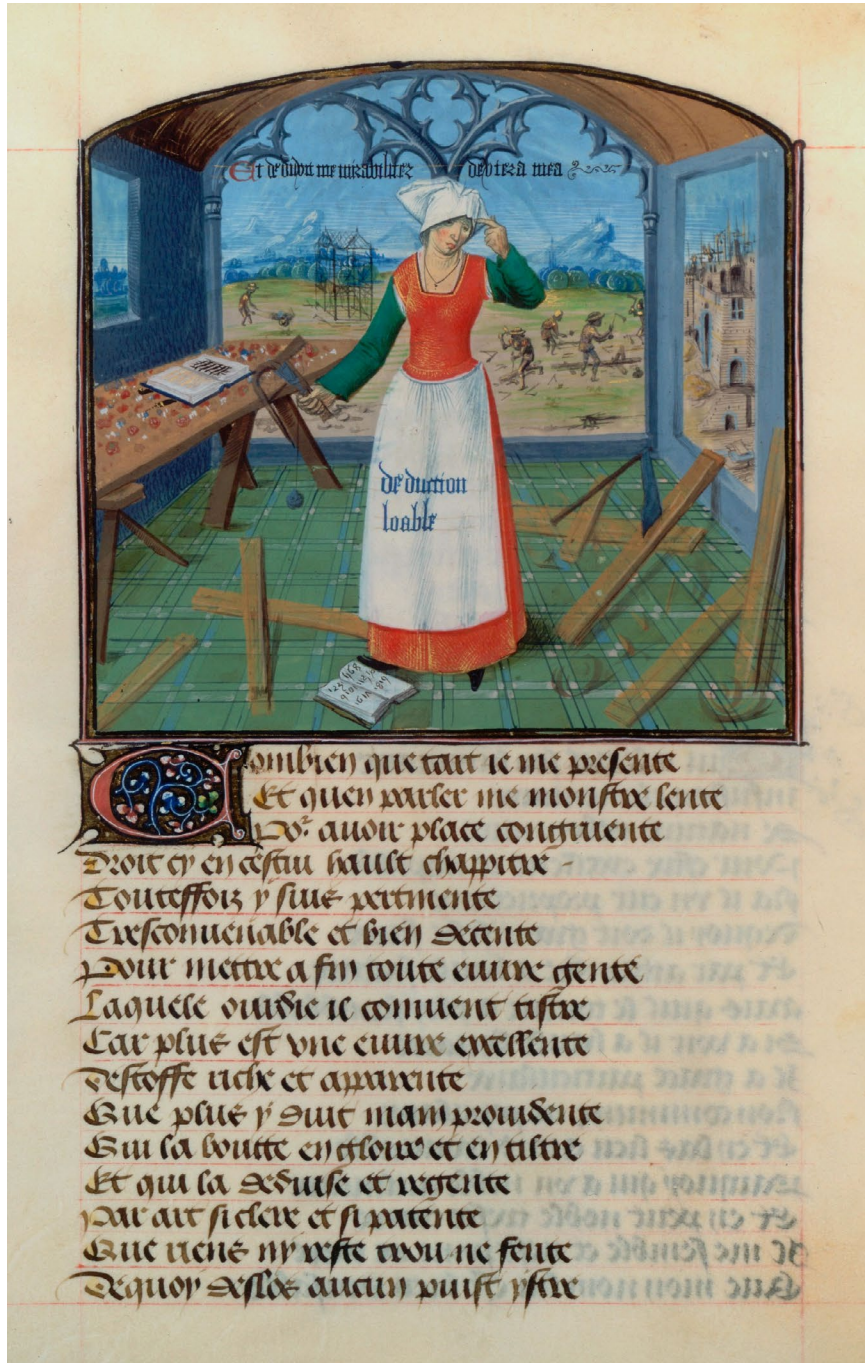 Et deduxit me mirabiliter dextera mea
deduction
loable
Combien que tart ie me presente
Et quen parler me monstre lente
Por auoir place congruente
Droit cy en cestui hault chappitre
Touteffois y suis pertinente
Tresconuenable et bien decente
Pour mettre a fin toute euure gente
Laquele ourdie il conuient tistre
Car plus est vne euure excellente
Destoffe riche et apparente
Que plus y duit main prouidente
Qui la boutte en gloire et en tiltre
Et qui la deduise et regente
Par art si clere et si patente
Que riens ny reste trou ne fente
Dequoy deslos aucun puist ystre